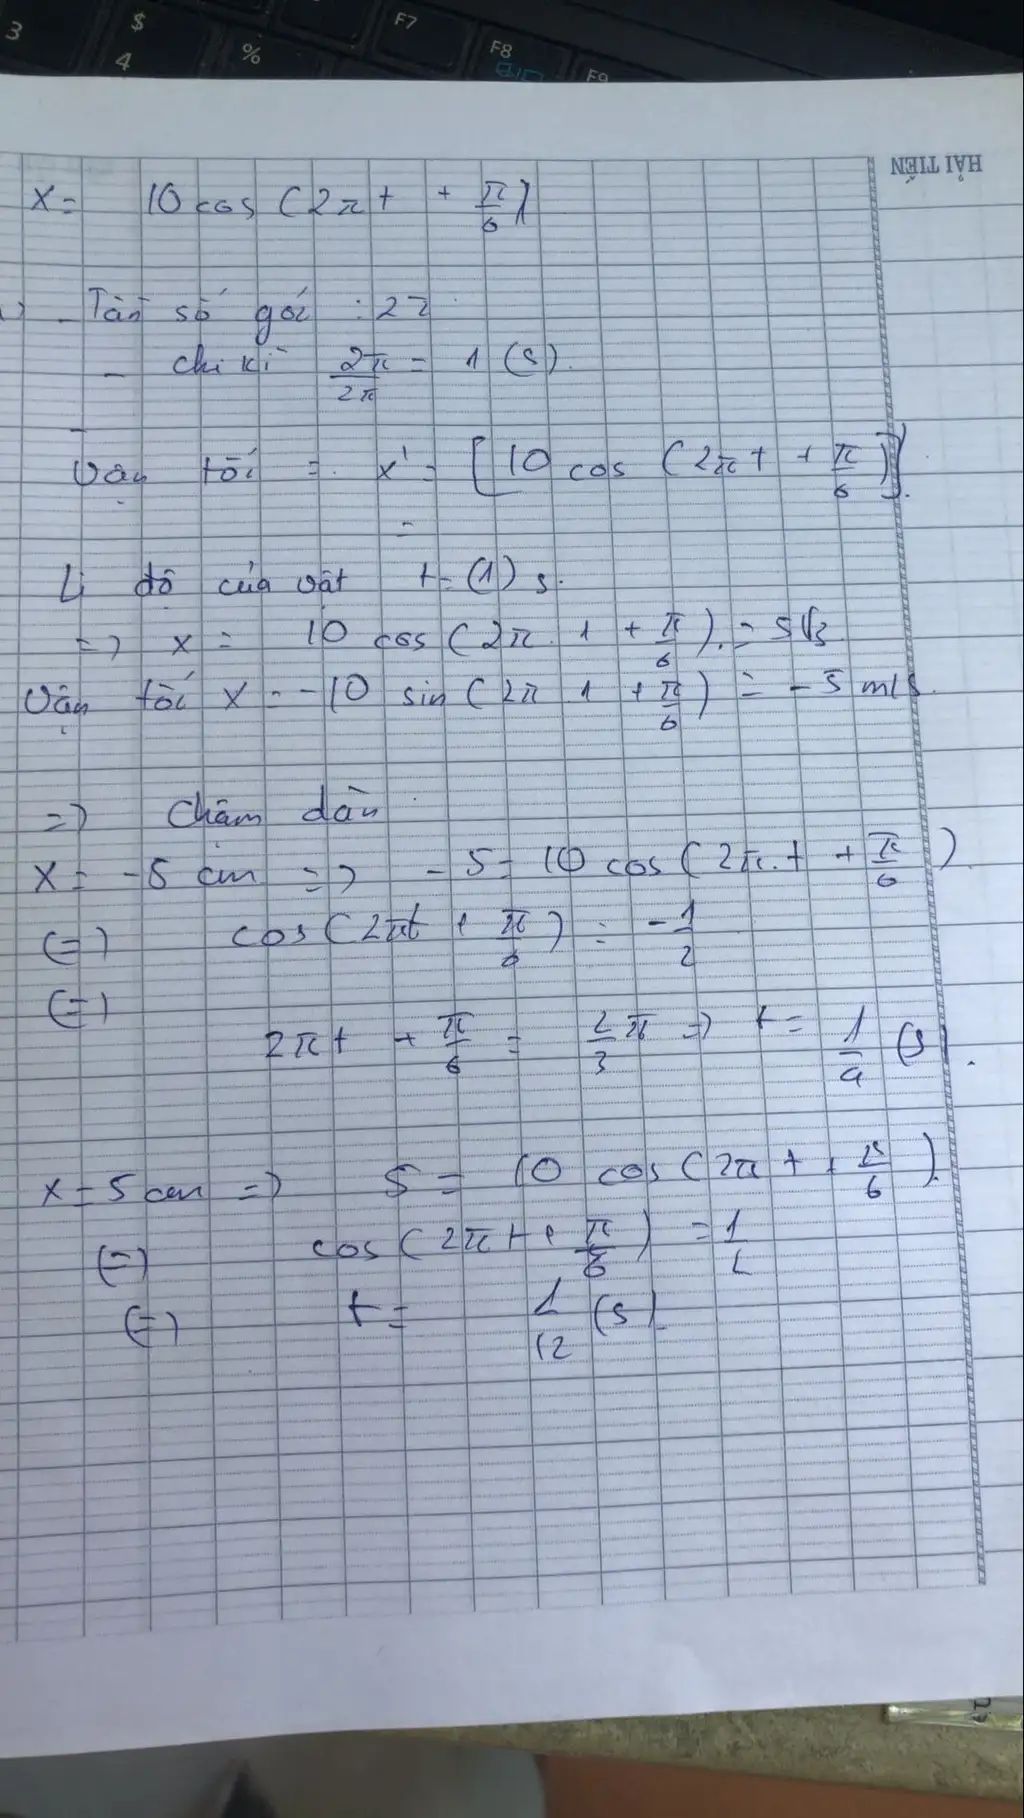 3
$
4
%
F7
F8
F9
HẢI TIẾN
x = 10 cos (2πt + π/6)
- Tần số góc : 2π
- Chi kì 2π/2π = 1 (s).
-
Vận tốc = x' = [10 cos (2πt + π/6)]'.
=
Li độ của vật t = (1) s.
=> x = 10 cos (2π . 1 + π/6). = 5√3
Vận tốc x = -10 sin (2π 1 + π/6) = -5 m/s.
=> Chậm dần
x = -5 cm => -5 = 10 cos (2π.t + π/6).
(=) cos (2πt + π/6) = -1/2
(=)
2πt + π/6 = 2/3 π => t = 1/4 (s).
x = 5 cm => 5 = 10 cos (2πt + π/6).
(=) cos (2πt + π/6) = 1/2
(=) t = 1/12 (s)